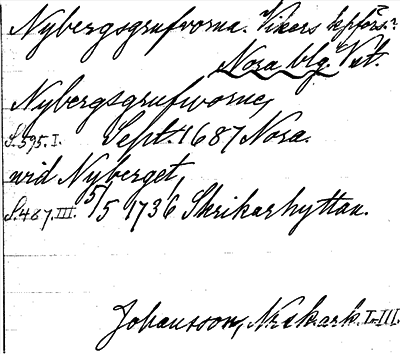 Nybergsgrufvorna. Vikers kpförs.?
Nora blg. Vst.
Nybergsgrufworne,
S. 595. I. Sept. 1687 Nora.
wid Nyberget,
S. 487. III. 5/5 1736 Skrikarhyttan.
Johansson, I-III.